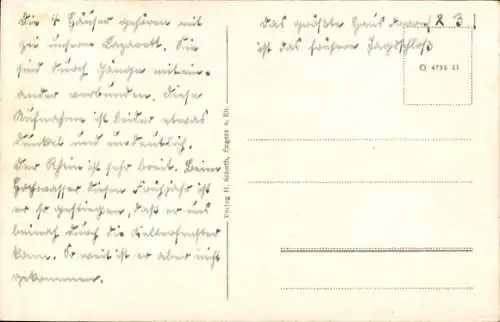 Die 4 Häuser gehören mit
zu unserm Lazarett. Sie
sind durch Gänge mitein-
ander verbunden. Diese
Aufnahme ist leider etwas
dunkel und undeutlich.
Der Rhein ist sehr breit. Beim
Hochwasser dieses Frühjahr ist
er so gestiegen, daß er uns
beinah durch die Kellerfenster
kam. So weit ist er aber nicht
gekommen.
Verlag H. Scheth, Engers a. Rh.
Das größte Haus
ist das frühere Jagdschloß
4796 41